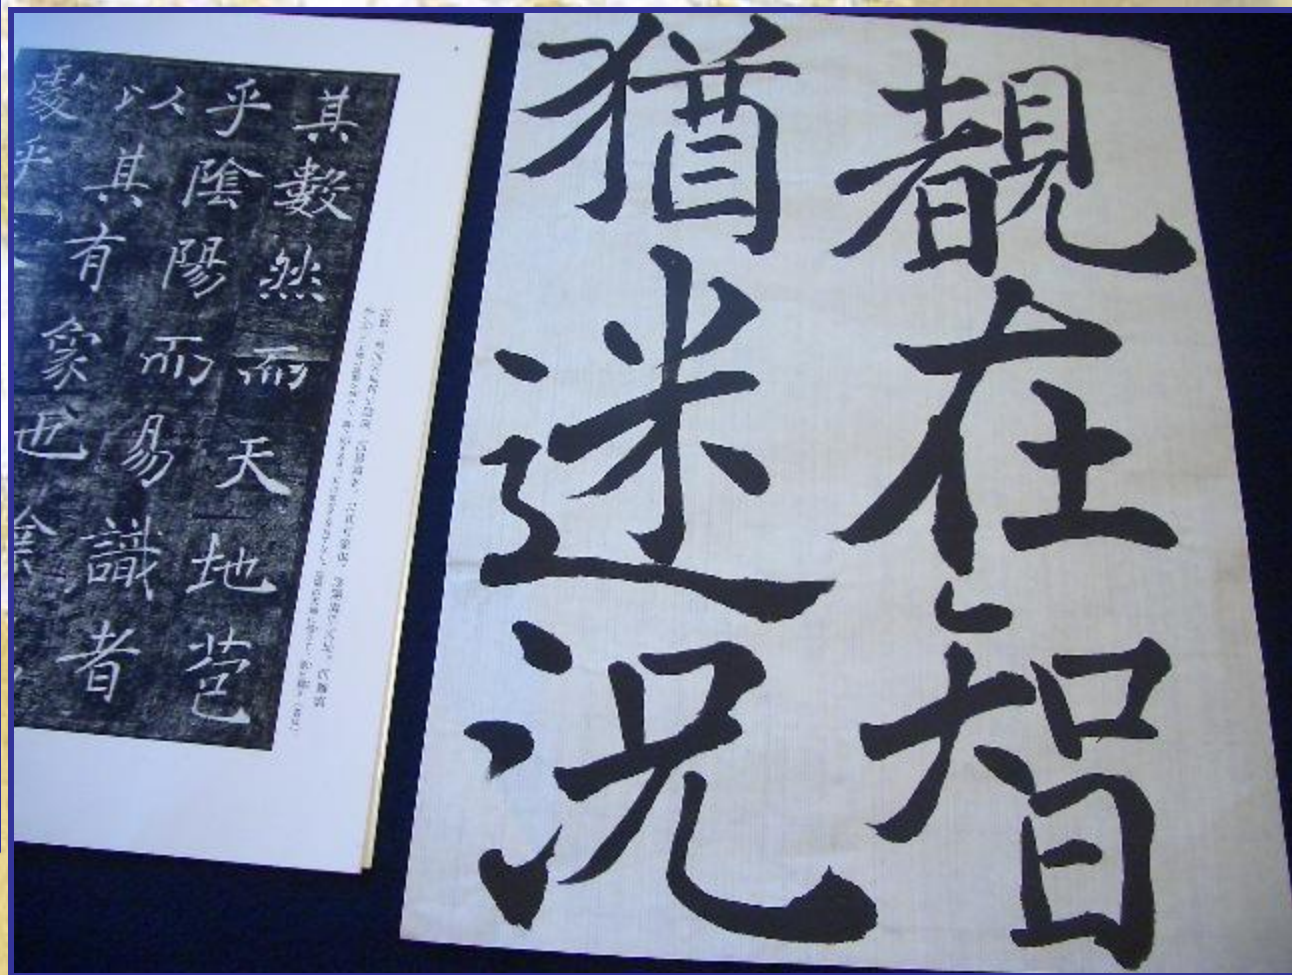 覩在智
猶迷況
其數然而天地苞
乎陰陽而易識者
以其有象也
處乎